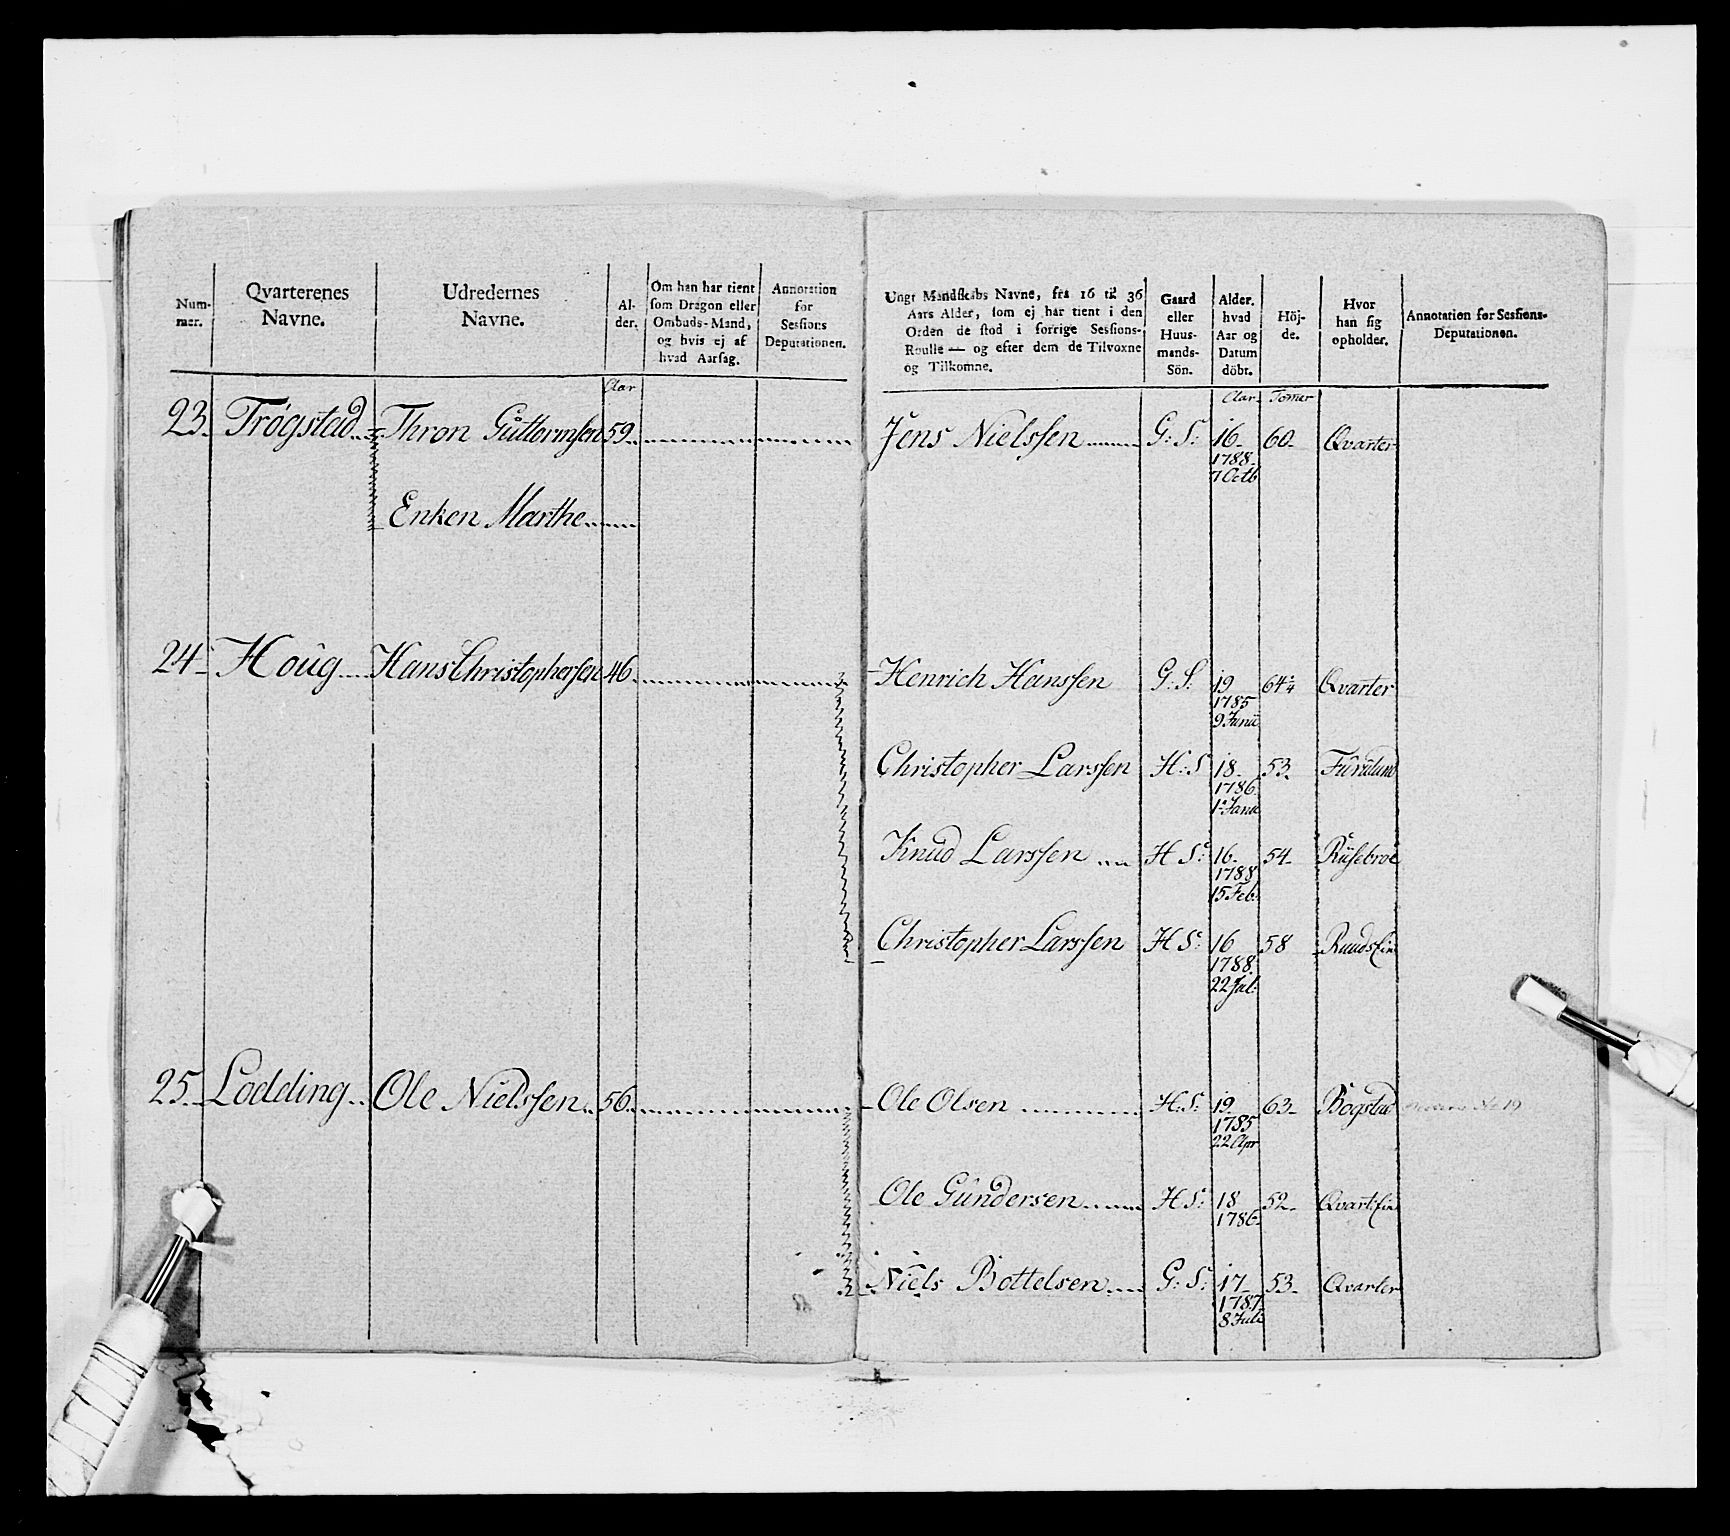 Num-
mer.
Qvarterenes
Navne.
Udredernes
Navne.
Al-
der.
Om han har tient
som Dragon eller
Ombuds-Mand,
og hvis ej af
hvad Aarsag.
Annotation
for
Sessions
Deputationen.
Aar
23. Trøgstad Thron Guttormsen 59.
Enken Marthe
24 Houg Hans Christophersen 46
25. Lodding Ole Nielssen 56
Ungt Mandskabs Navne, fra 16 til 36
Aars Alder, som ej har tient i den
Orden de stod i forrige Sessions-
Roulle — og efter dem de Tilvoxne
og Tilkomne.
Gaard
eller
Huus-
mands-
Sön.
Alder.
hvad
Aar og
Datum
döbt.
Höj-
de.
Hvor
han sig
opholder.
Annotation for Sessions-
Deputationen.
Aar Tomer
Jens Nielssen G: S: 16 60 Qvarter
1788.
7 Octb
Henrich Hanssen G: S: 19 64 Qvarter
1785
9 Junii
Christopher Larssen H: S 18 53 Furulund
1786
1 Janu
Knud Larssen H S: 16 54
1788
15 Feb:
Christopher Larssen H S: 16 58
1788.
22 Jul:
Ole Olsen H: S: 19 63 Bogstad 19
1785
22 Apr
Ole Gundersen H S: 18 52
1786
Niels Bottelsen G: S: 17 53 Qvarter
1787
8 Juli